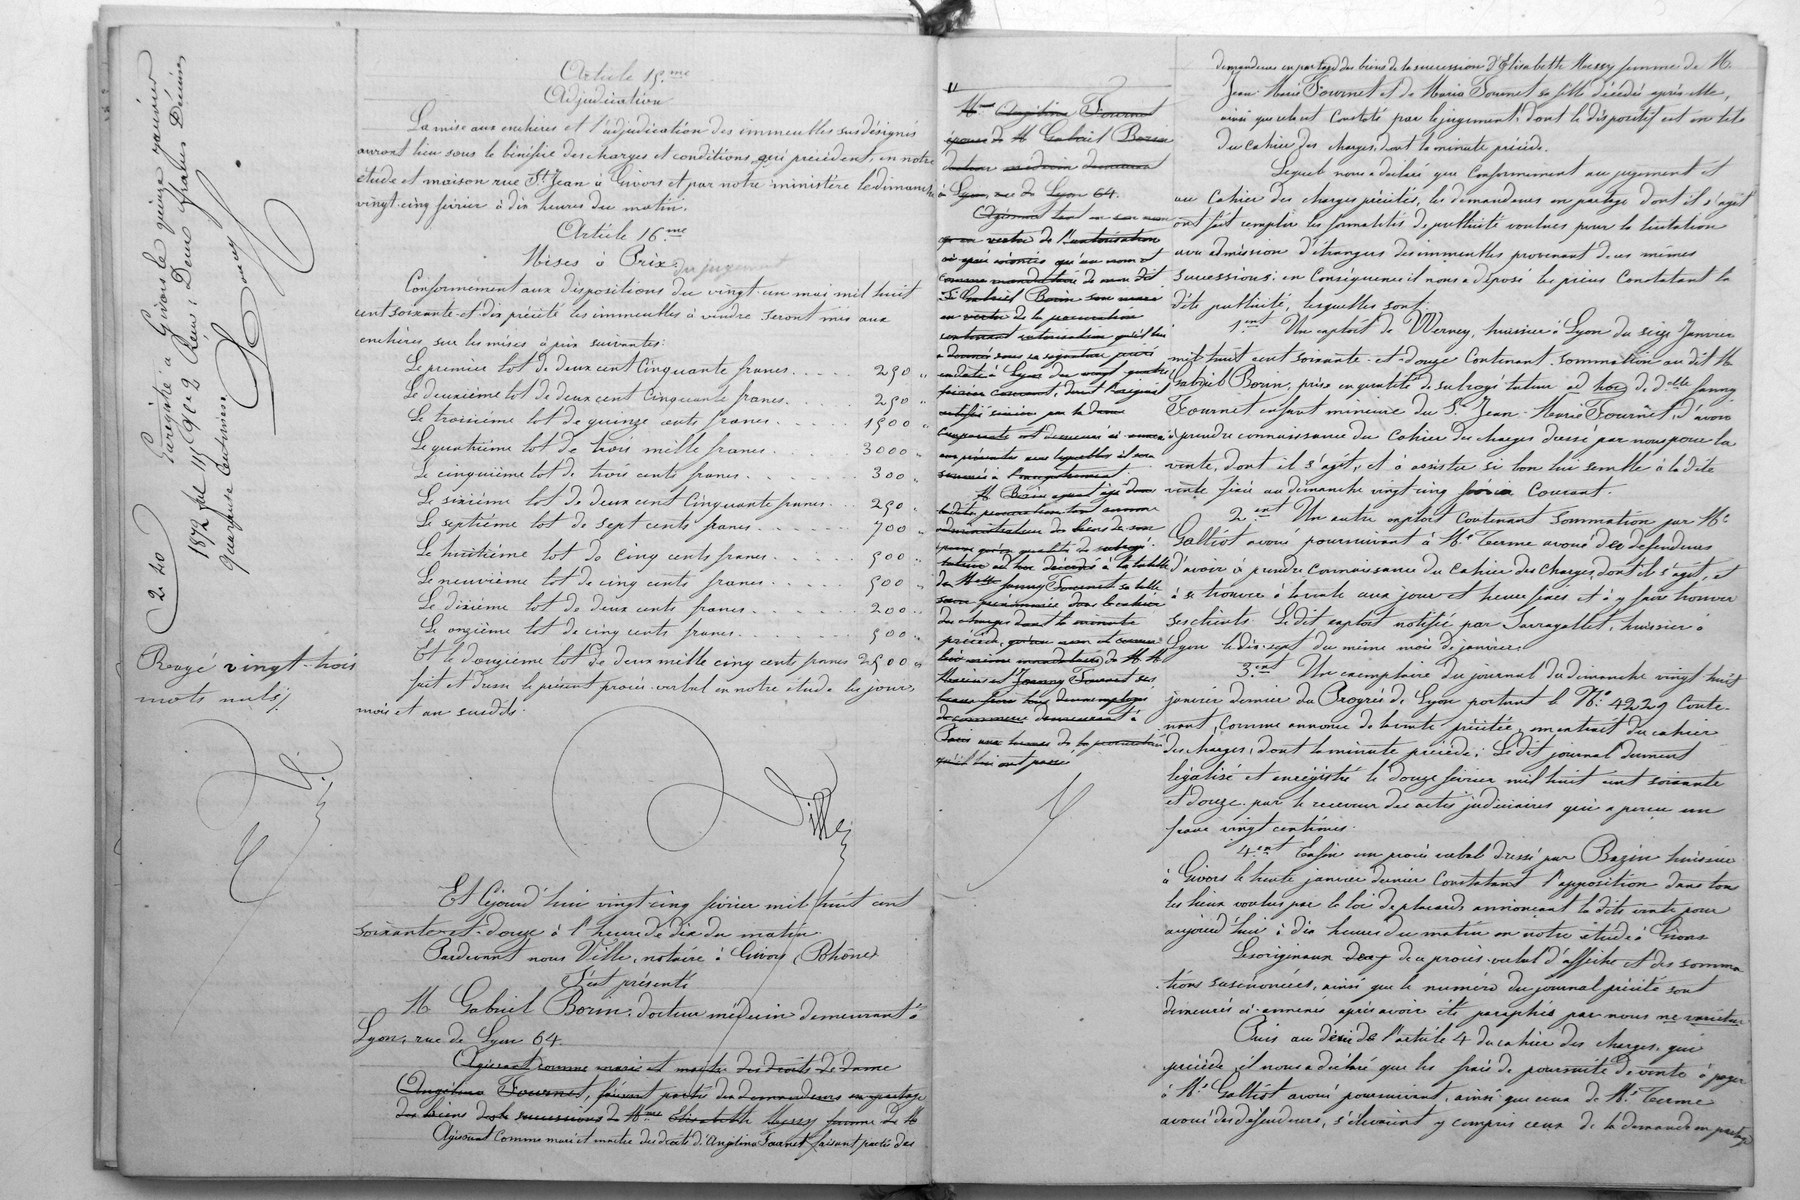 Enregistré à Givors le quinze janvier
1872 fol 11 Reçu : Deux francs Décimes
quarante centimes.
2 40
Rayé vingt-trois
mots nuls
Article 15.me
Adjudication
La mise aux enchères et l'adjudication des immeubles susdésignés
auront lieu sous le bénéfice des charges et conditions qui précèdent, en notre
étude et maison rue St Jean à Givors et par notre ministère le dimanche
vingt-cinq février à dix heures du matin.
Article 16.me
Mises à Prix
du jugement
Conformément aux dispositions du vingt-un mai mil huit
cent soixante-et-dix précité les immeubles à vendre seront mis aux
enchères sur les mises à prix suivantes:
Le premier lot de deux cent cinquante francs . . . . . 250 "
Le deuxième lot de deux cent cinquante francs. . . . 250 "
Le troisième lot de quinze cents francs . . . . . 1500 "
Le quatrième lot de trois mille francs . . . . . 3000 "
Le cinquième lot de trois cents francs . . . . . 300 "
Le sixième lot de deux cent cinquante francs . . . 250 "
Le septième lot de sept cents francs . . . . . 700 "
Le huitième lot de cinq cents francs . . . . . 500 "
Le neuvième lot de cinq cents francs . . . . . 500 "
Le dixième lot de deux cents francs . . . . . 200 "
Le onzième lot de cinq cents francs . . . . . 500 "
Et le douzième lot de deux mille cinq cents francs 2500 "
Fait et dressé le présent procès-verbal en notre étude les jours,
mois et an susdits.
Ville
Et Cejourd'hui vingt-cinq février mil huit cent
soixante-et-douze à l'heure de dix du matin
Pardevant nous Ville, notaire à Givors (Rhône)
S'est présenté
M Gabriel Borin, docteur médecin demeurant à
Lyon, rue de Lyon 64.
Agissant comme mari et maître des droits de dame
Angelina Fournet, faisant partie des demandeurs en partage
des biens des successions de Mme Elisabeth Mussy femme de M
Agissant Comme mari et maître des droits d'Angelina Fournet faisant partie des
11
Mme Angelina Fournet
épouse de M Gabriel Borin
docteur médecin demeurant
à Lyon, rue de Lyon 64.
Agissant tant en son nom
qu'en vertu de l'autorisation
ci-après énoncée qu'au nom et
comme mandataire de mon dit
Sr Gabriel Borin son mari
en vertu de la procuration
contenant autorisation qu'il lui
a donnée sous sa signature privée
en date à Lyon du vingt quatre
février courant, dont l'original
certifié sincère par la dame
comparante est demeuré ci-annexé
M Borin ayant agi dans
la dite procuration tant comme
administrateur des biens de son
épouse qu'en qualité de subrogé
tuteur ad hoc à la tutelle
de Melle fanny Fournet sa belle
soeur prénommée dans le cahier
des charges dont la minute
précède, qu'au nom et comme
lui même mandataire de M M
Marius et Joanny Fournet ses
beaux frères tous deux employés
de commerce demeurant à
Paris aux termes de la procuration
qu'ils lui ont passée
demandeurs en partage des biens de la succession d'Elisabeth Mussy femme de M.
Jean-Marie Fournet et de Maria Fournet sa fille décédée après elle,
ainsi que cela est Constaté par le jugement dont le dispositif est en tête
du Cahier des charges, dont la minute précède.
Lequel nous a déclaré que Conformément au jugement et
au Cahier des charges précités, les demandeurs en partage dont il s'agit
ont fait remplir les formalités de publicité voulues pour la licitation
avec admission d'étrangers des immeubles provenant de ces mêmes
successions. en Conséquence il nous a déposé les pièces Constatant la
dite publicité, lesquelles sont:
1.ent Un exploit de Werney, huissier à Lyon du seize Janvier
mil huit cent soixante-et-douze Contenant sommation au dit M
Gabriel Borin, pris en qualité de subrogé tuteur ad hoc de delle fanny
Fournet enfant mineure du Sr Jean-Marie Fournet, d'avoir
à prendre connaissance du Cahier des charges dressé par nous pour la
vente, dont il s'agit, et à assister si bon lui semble à la dite
vente fixée au dimanche vingt-cinq février Courant.
2.ent Un autre exploit Contenant Sommation par Me
Galtiot avoué poursuivant à Me Terme avoué des défendeurs
d'avoir à prendre Connaissance du Cahier des Charges, dont il s'agit, et
à se trouver à la vente aux jour et heure fixés et à y faire trouver
ses clients. Le dit exploit notifié par Sarragallet, huissier à
Lyon le dix-sept du même mois de janvier.
3.ent Un exemplaire du journal du dimanche vingt huit
janvier dernier du Progrès de Lyon portant le No. 4229 Conte-
nant, comme annonce de la vente précitée, un extrait du cahier
des charges, dont la minute précède. Le dit journal dument
légalisé et enregistré le douze février mil huit cent soixante
et douze par le receveur des actes judiciaires qui a perçu un
franc vingt centimes.
4.ent Enfin un procès verbal dressé par Bazin huissier
à Givors le trente janvier dernier Constatant l'apposition dans tous
les lieux voulus par la loi de placards annonçant la dite vente pour
aujourd'hui à dix heures du matin en notre étude à Givors
Les originaux de ce procès-verbal d'affiche et des somma
-tions susénoncées, ainsi que le numéro du journal précité sont
demeurés ci-annexés après avoir été paraphés par nous ne varietur
Puis au désir de l'article 4 du cahier des charges, qui
précède il nous a déclaré que les frais de poursuite de vente à payer
à Me Galtiot avoué poursuivant, ainsi que ceux de Me Terme
avoué des défendeurs, s'élevaient y compris ceux de la demande en partage